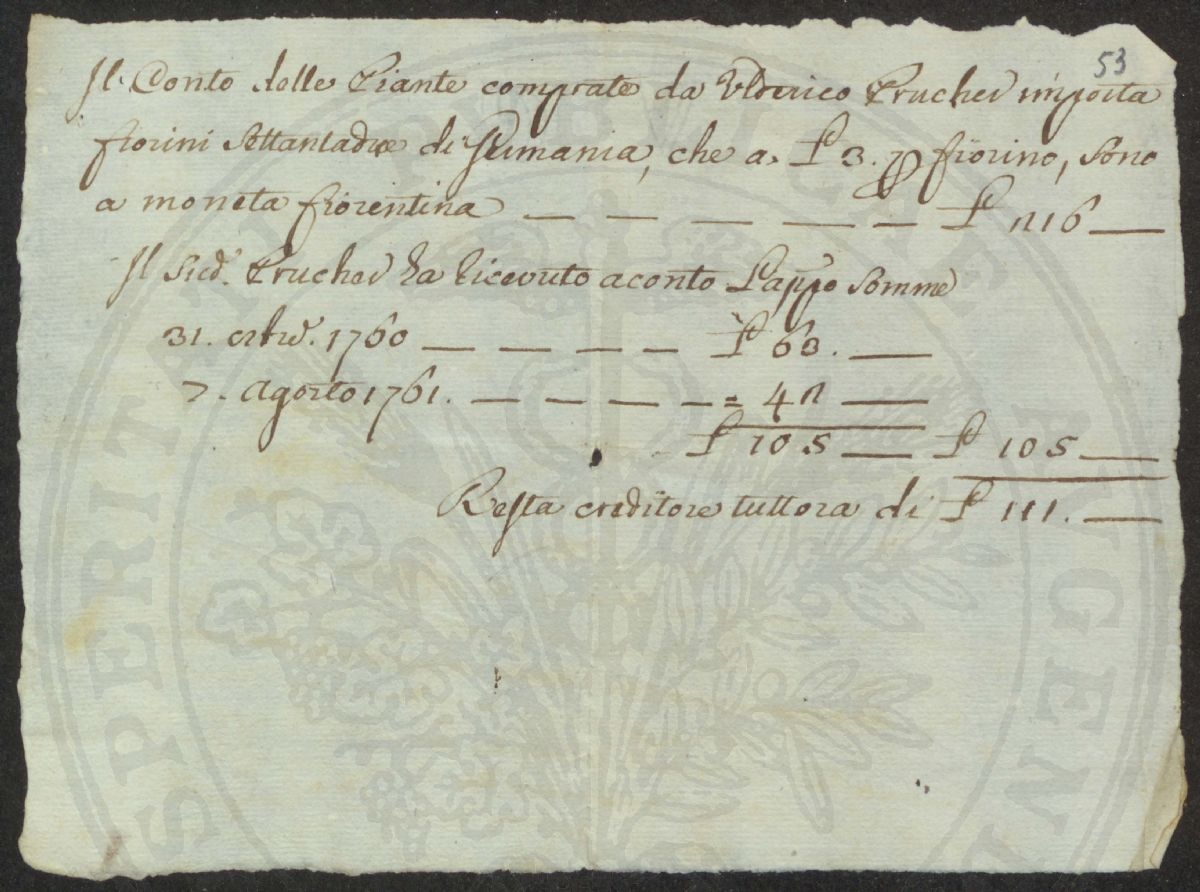 53
Il Conto delle Piante comprate da Ulderico Prucher importa
fiorini settantadue di Germania, che a £ 3. p fiorino, sono
a moneta fiorentina — — — — — — £ 216 —
Il sud.º Prucher ha ricevuto a conto l'app.º somme
31. 1760 — — — — £ 63. —
7. Agosto 1761. — — — — — = 42 —
£ 105 — £ 105 —
Resta creditore tuttora di £ 111. —
SPERITATI PUBLICAE AUGEN